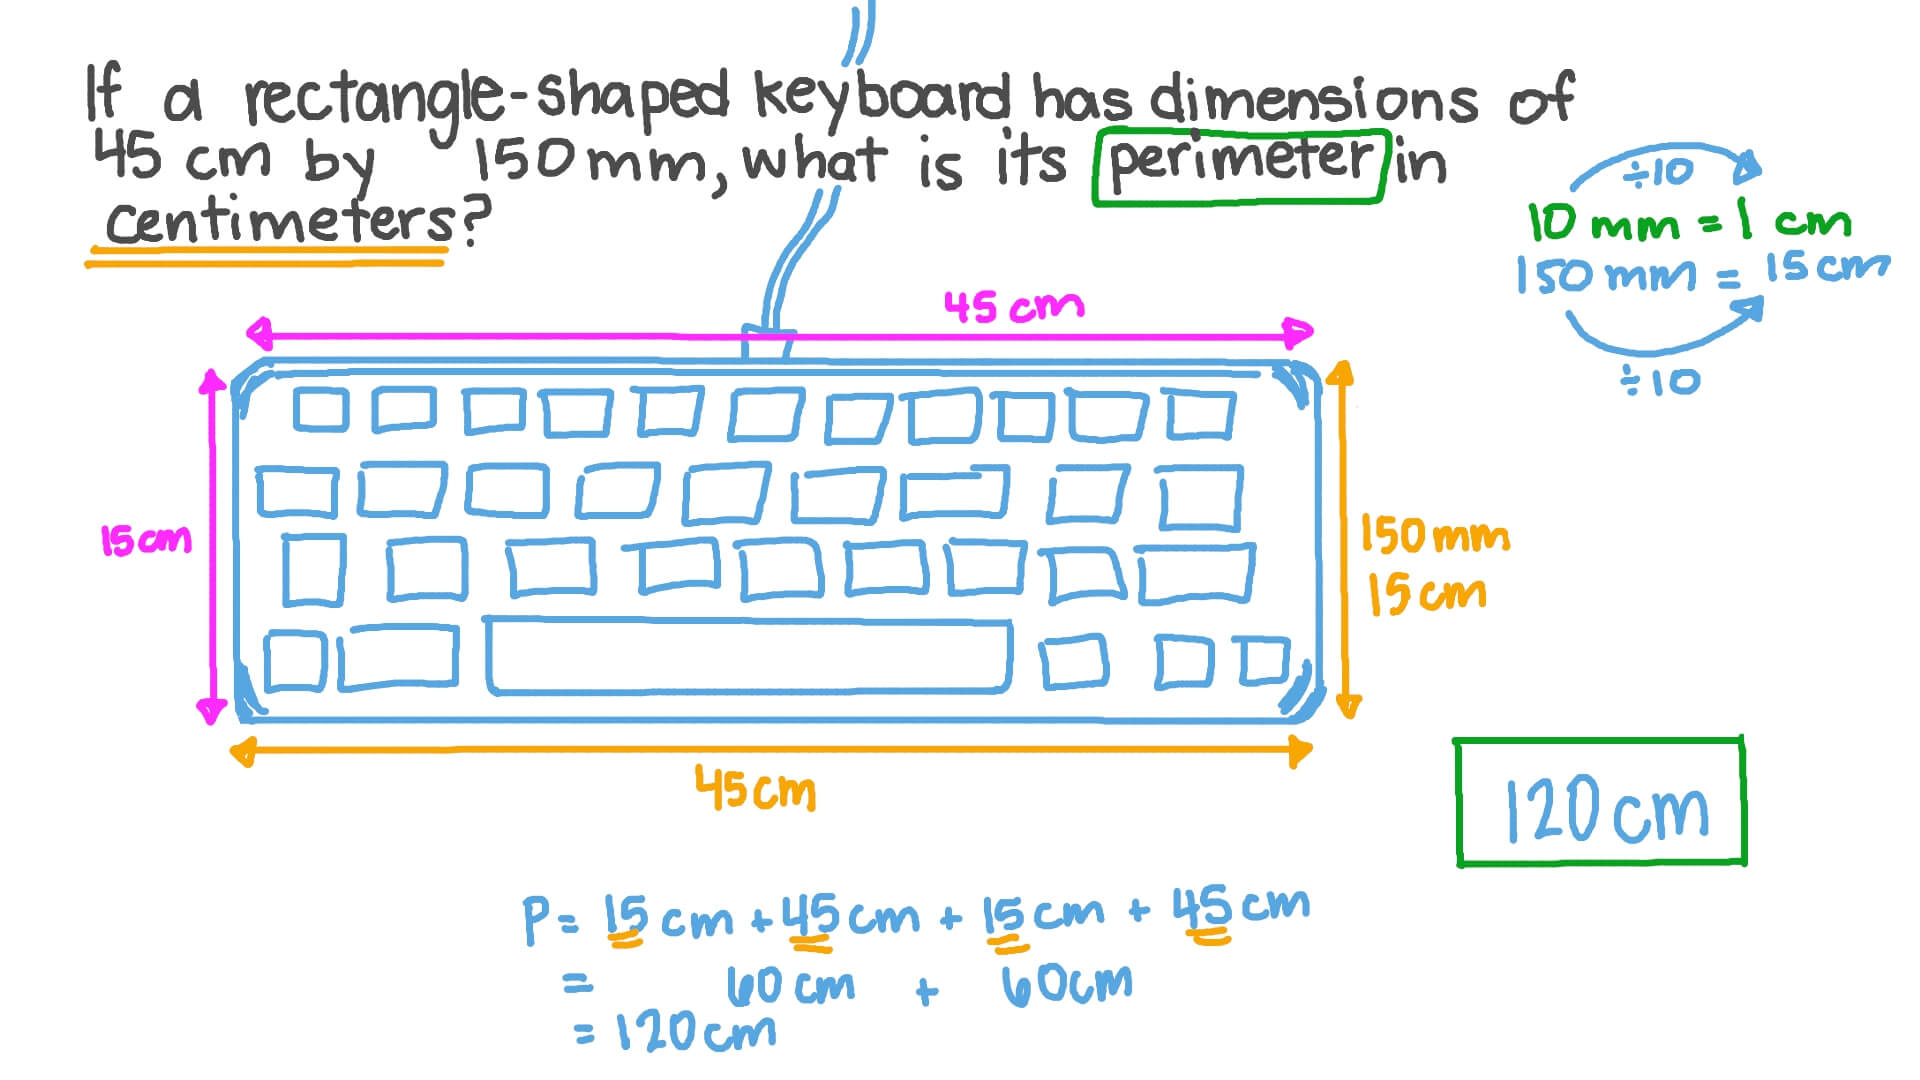 If a rectangle-shaped keyboard has dimensions of
45 cm by 150 mm, what is its perimeter in
centimeters?
÷10
10 mm = 1 cm
150 mm = 15 cm
÷10
45 cm
15 cm
150 mm
15 cm
45 cm
120 cm
P = 15 cm + 45 cm + 15 cm + 45 cm
= 60 cm + 60 cm
= 120 cm